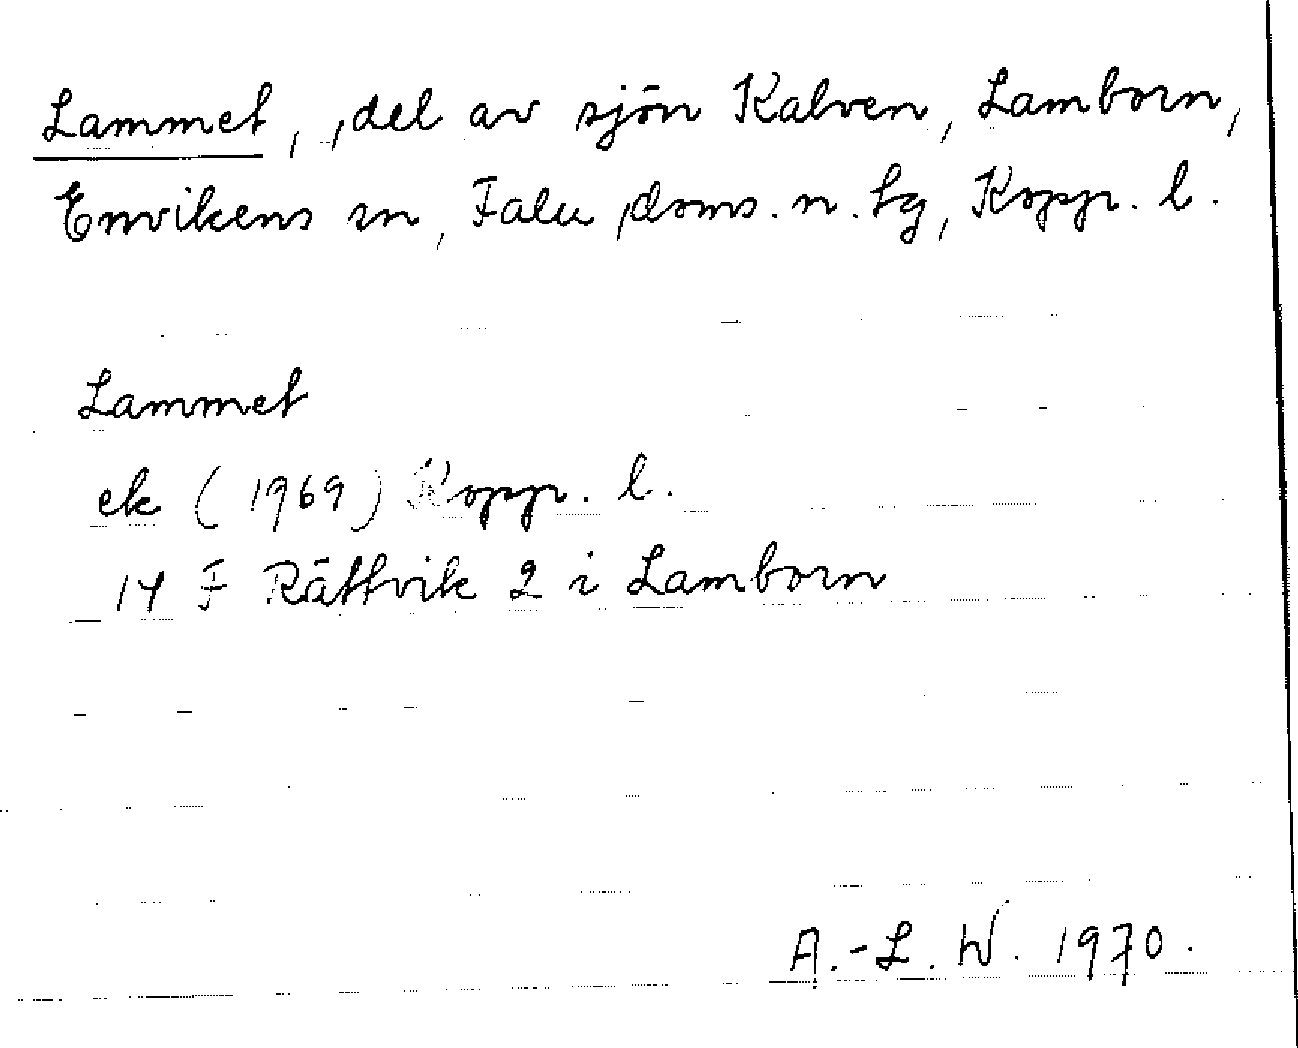 Lammet, del av sjön Kalven, Lamborn,
Envikens sn, Falu doms. n. tg, Kopp. l.
Lammet
ek (1969) Kopp. l.
14 F Rättvik 2 i Lamborn
A.-L. W. 1970.